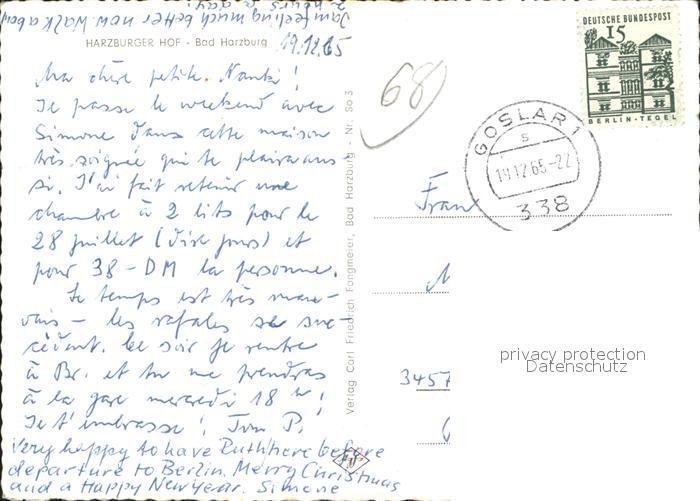 I am feeling much better now. Walk about
2 hours a day!
HARZBURGER HOF - Bad Harzburg
19.12.65
Ma chère petite Nanti!
Je passe le weekend avec
Simone dans cette maison
très soignée qui te plaira aus-
si. J'ai fait retenir une
chambre à 2 lits pour le
28 juillet (dix jours) et
pour 38-DM la personne.
Le temps est très mau-
vais - les rafales se suc-
cèdent. Ce soir je rentre
à Br. et tu me prendras
à la gare mercredi 18 h!
Je t'embrasse! Ton P.
Very happy to have Ruth here before
departure to Berlin. Merry Christmas
and a Happy New Year. Simone
Verlag Carl Friedrich Fangmeier, Bad Harzburg - Nr. So 3
68
DEUTSCHE BUNDESPOST
15
BERLIN-TEGEL
GOSLAR 1
s
19.12.65-22
338
Frau
3457
privacy protection
Datenschutz